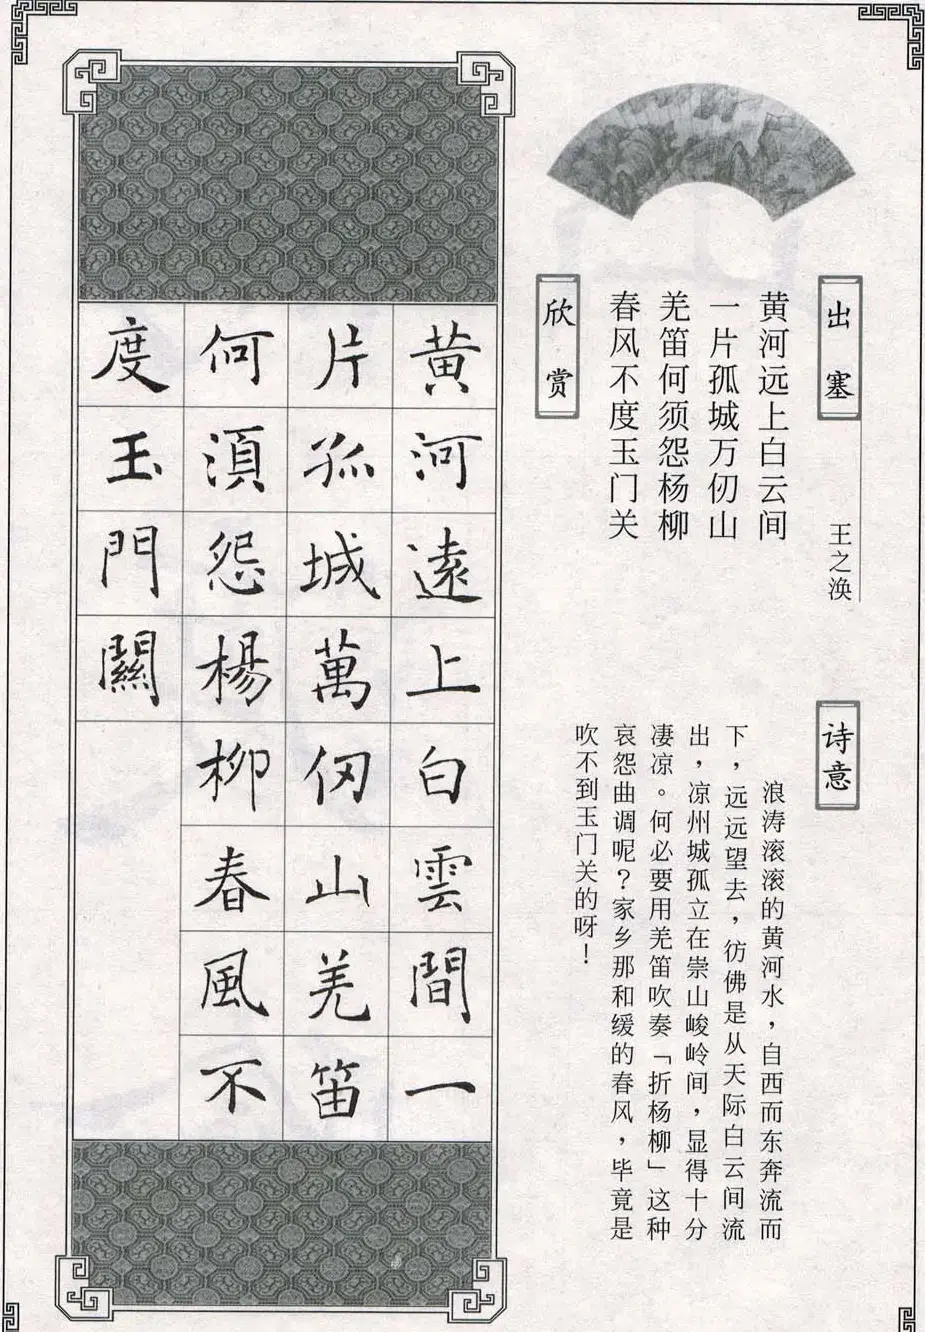 出塞
王之涣
黄河远上白云间
一片孤城万仞山
羌笛何须怨杨柳
春风不度玉门关
诗意
浪涛滚滚的黄河水，自西而东奔流而
下，远远望去，彷佛是从天际白云间流
出，凉州城孤立在崇山峻岭间，显得十分
凄凉。何必要用羌笛吹奏「折杨柳」这种
哀怨曲调呢？家乡那和缓的春风，毕竟是
吹不到玉门关的呀！
欣赏
黄河遠上白雲間一
片孤城萬仞山羌笛
何須怨楊柳春風不
度玉門關